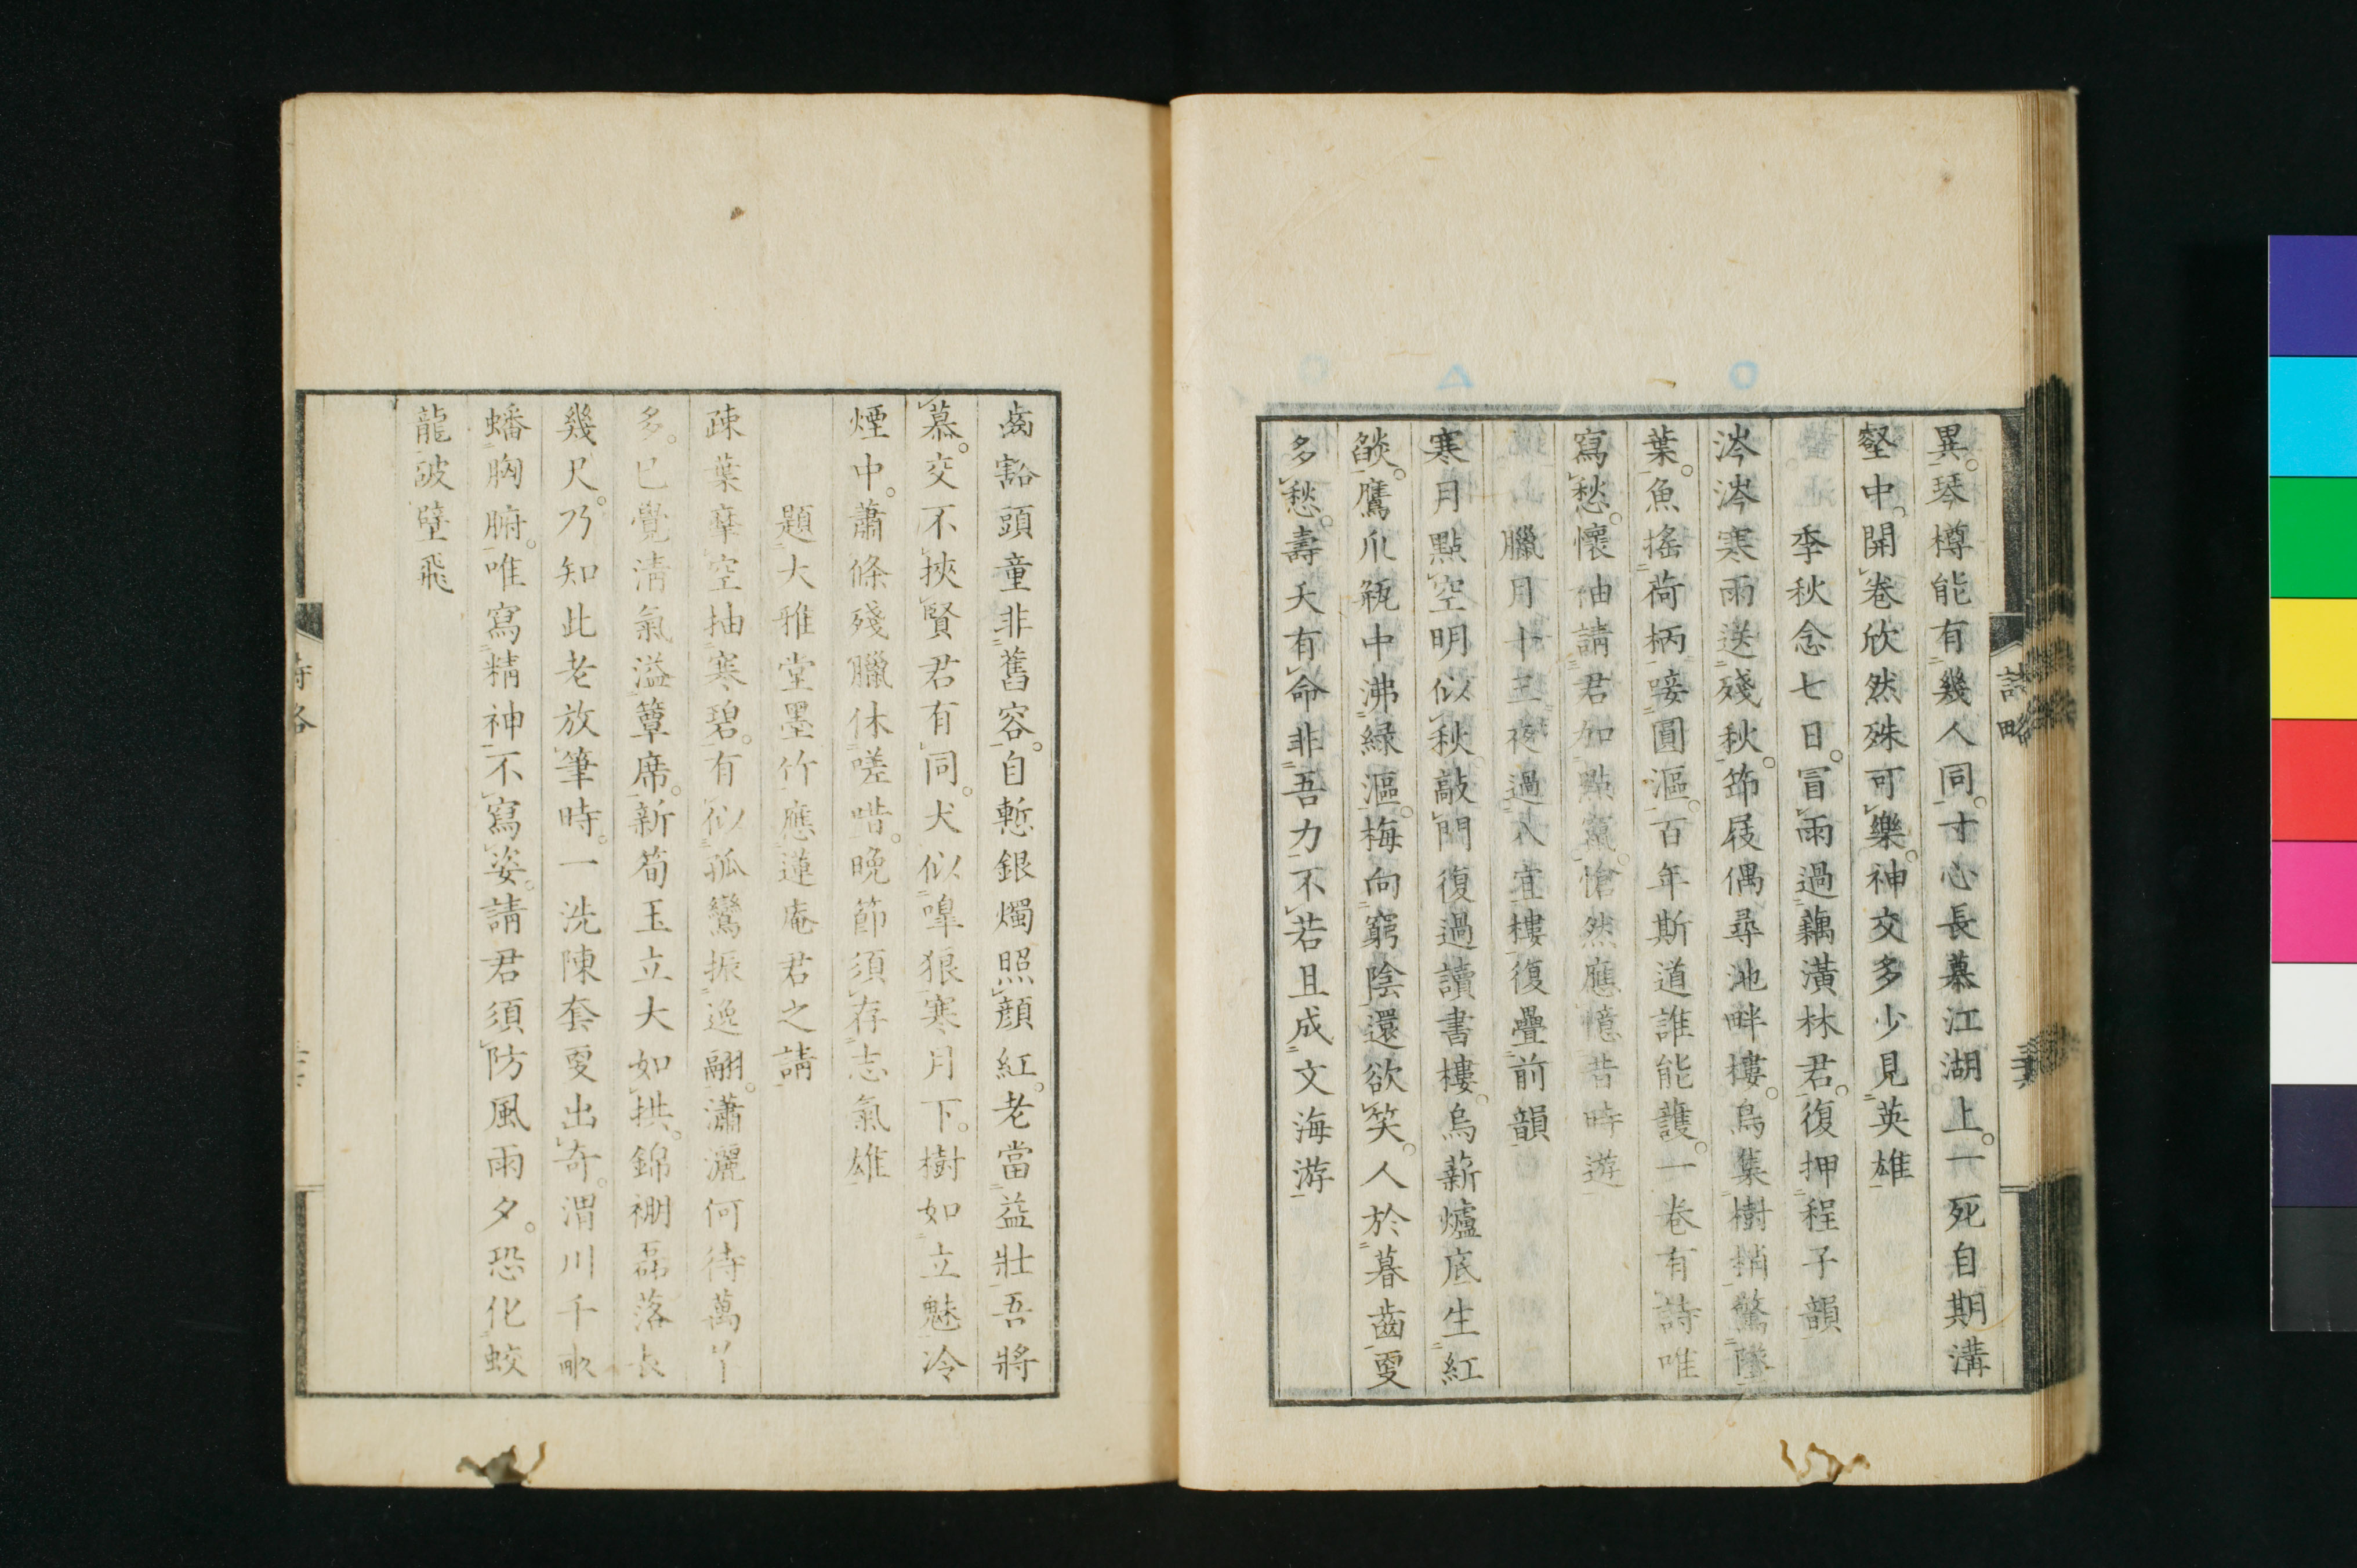 異。琴樽能有幾人同。寸心長慕江湖上。一死自期溝
壑中。開卷欣然殊可樂。神交多少見英雄
季秋念七日。冒雨過藕潢林君。復押程子韻
涔涔寒雨送殘秋。笻屐偶尋池畔樓。烏集樹梢驚墜
葉。魚搖荷柄唼圓漚。百年斯道誰能護。一卷有詩唯
寫愁。懷袖請君如點竄。愴然應憶昔時遊
臘月十三夜過八宜樓復疊前韻
寒月點空明似秋。敲門復過讀書樓。烏薪爐底生紅
燄。鷹爪瓶中沸緑漚。梅向窮陰還欲笑。人於暮齒更
多愁。壽夭有命非吾力。不若且成文海游
詩略
齒豁頭童非舊容。自慙銀燭照顔紅。老當益壯吾將
慕。交不挾賢君有同。犬似嘷狼寒月下。樹如立魅冷
煙中。蕭條殘臘休嗟喈。晩節須存志氣雄
題大雅堂墨竹應蓮庵君之請
疎葉拏空抽寒碧。有似孤鸞振逸翮。瀟灑何待萬丫
多。已覺淸氣溢簟席。新筍玉立大如拱。錦裯磊落長
幾尺。乃知此老放筆時。一洗陳套更出奇。渭川千畝
蟠胸腑。唯寫精神不寫姿。請君須防風雨夕。恐化蛟
龍破壁飛